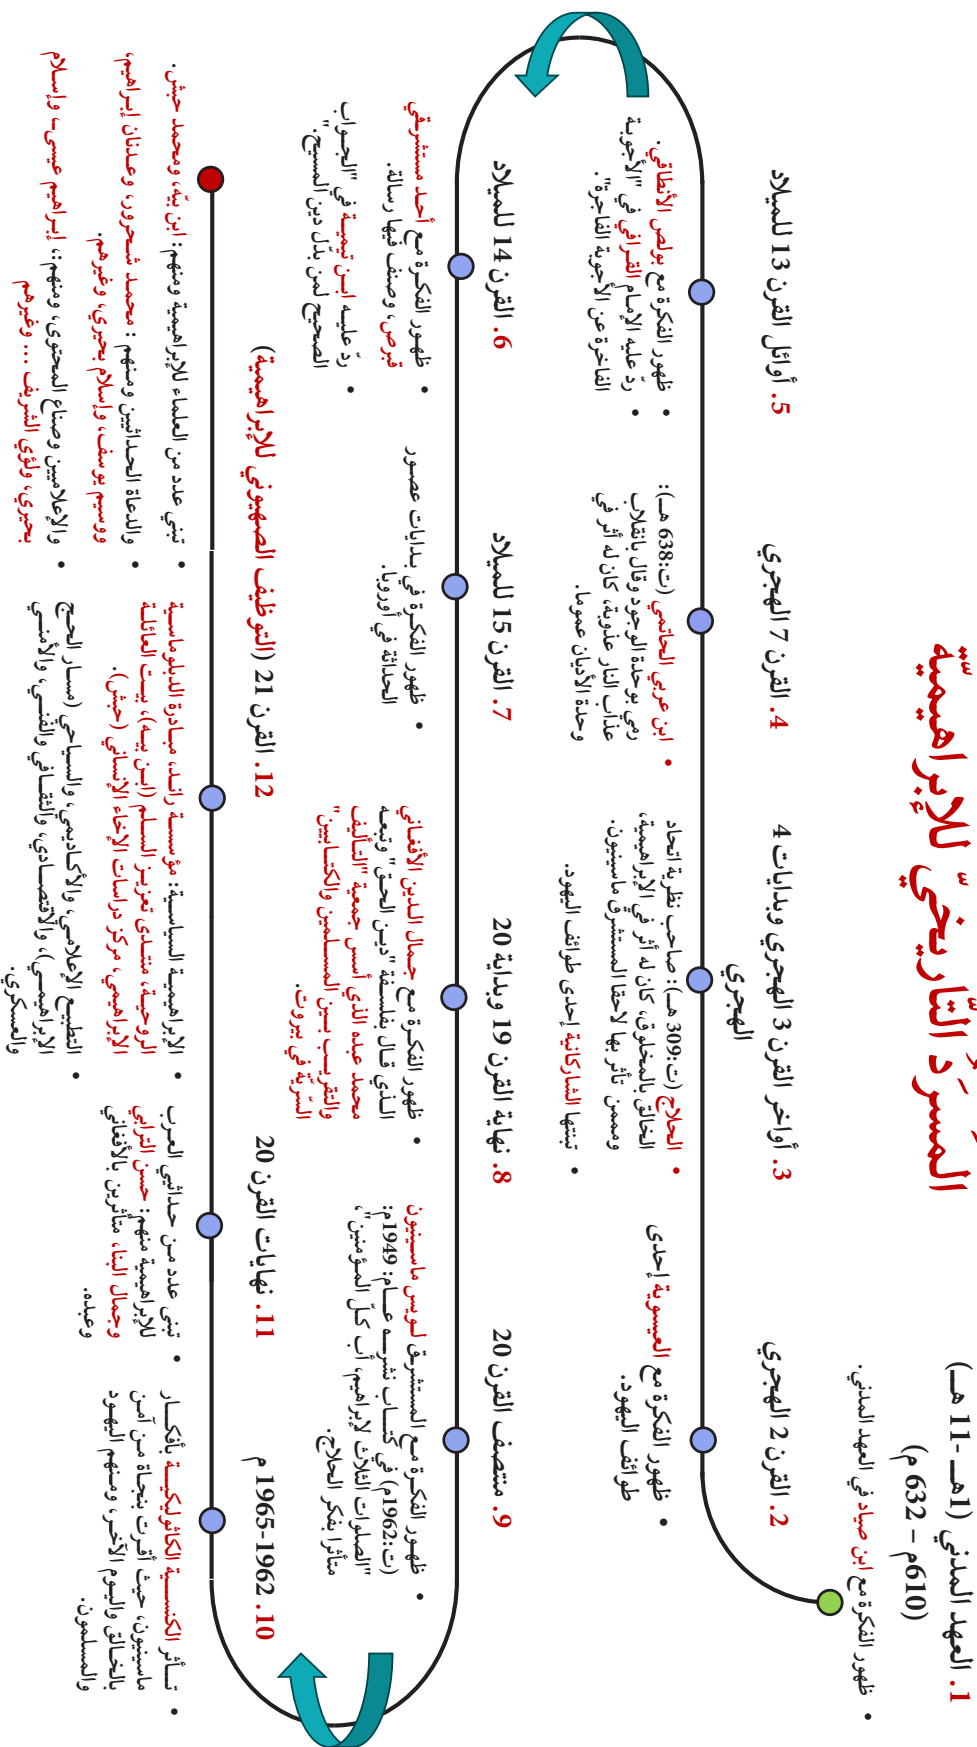 المَسرَدُ التَّاريخيّ للإبراهيميّة
1. العهد المدني (1هـ -11 هـ)
(610م – 632 م)
• ظهور الفكرة مع ابن صياد في العهد المدني.
2. القرن 2 الهجري
• ظهور الفكرة مع العيسوية إحدى
طوائف اليهود.
3. أواخر القرن 3 الهجري وبدايات 4
الهجري
• الحلاج (ت:309 هـ): صاحب نظرية اتحاد
الخالق بالمخلوق، كان له أثر في الإبراهيمية،
وممن تأثر بها لاحقا المستشرق ماسينيون.
• تبنتها الشاركانية إحدى طوائف اليهود.
4. القرن 7 الهجري
• ابن عربي الحاتمي (ت:638 هـ):
رمي بوحدة الوجود وقال بانقلاب
عذاب النار عذوبة، كان له أثر في
وحدة الأديان عموما.
5. أوائل القرن 13 للميلاد
• ظهور الفكرة مع بولص الأنطاقي.
• ردّ عليه الإمام القرافي في "الأجوبة
الفاخرة عن الأجوبة الفاجرة".
6. القرن 14 للميلاد
• ظهور الفكرة مع أحد مستشرقي
قبرص، وصنف فيها رسالة.
• ردّ عليه ابن تيمية في "الجواب
الصحيح لمن بدّل دين المسيح".
7. القرن 15 للميلاد
• ظهور الفكرة في بدايات عصور
الحداثة في أوروبا.
8. نهاية القرن 19 وبداية 20
• ظهور الفكرة مع جمال الدين الأفغاني
الذي قال بفلسفة "دين الحق" وتبعه
محمد عبده الذي أسس جمعية "التأليف
والتقريب بين المسلمين والكتابيين"
السّريّة في بيروت.
9. منتصف القرن 20
• ظهور الفكرة مع المستشرق لويس ماسينيون
(ت:1962م) في كتاب نشره عام: 1949م:
"الصلوات الثلاث لإبراهيم، أب كلّ المؤمنين"،
متأثرا بفكر الحلاج.
10. 1962-1965 م
• تأثر الكنسية الكاثوليكية بأفكار
ماسينيون، حيث أقرت بنجاة من آمن
بالخالق واليوم الآخر، ومنهم اليهود
والمسلمون.
11. نهايات القرن 20
• تبنى عدد من حداثيي العرب
للإبراهيمية منهم: حسن الترابي
وجمال البنا، متأثرين بالأفغاني
وعبده.
12. القرن 21 (التوظيف الصهيوني للإبراهيمية)
• الإبراهيمية السياسية: مؤسسة راند، مبادرة الدبلوماسية
الروحية، منتدى تعزيز السلم (ابن بيه)، بيت العائلة
الإبراهيمي، مركز دراسات الإخاء الإنساني (حبش).
• التطبيع الإعلامي، والأكاديمي، والسياحي (مسار الحج
الإبراهيمي)، والاقتصادي، والثقافي والفني، والأمني
والعسكري.
• تبني عدد من العلماء للإبراهيمية ومنهم: ابن بيّه، ومحمد حبش.
• والدعاة الحداثيين ومنهم : محمد شحرور، وعدنان إبراهيم،
ووسيم يوسف، وإسلام بحيري، وغيرهم.
• والإعلاميين وصناع المحتوى، ومنهم:، إبراهيم عيسى، وإسلام
بحيري، ولؤي الشريف ... وغيرهم